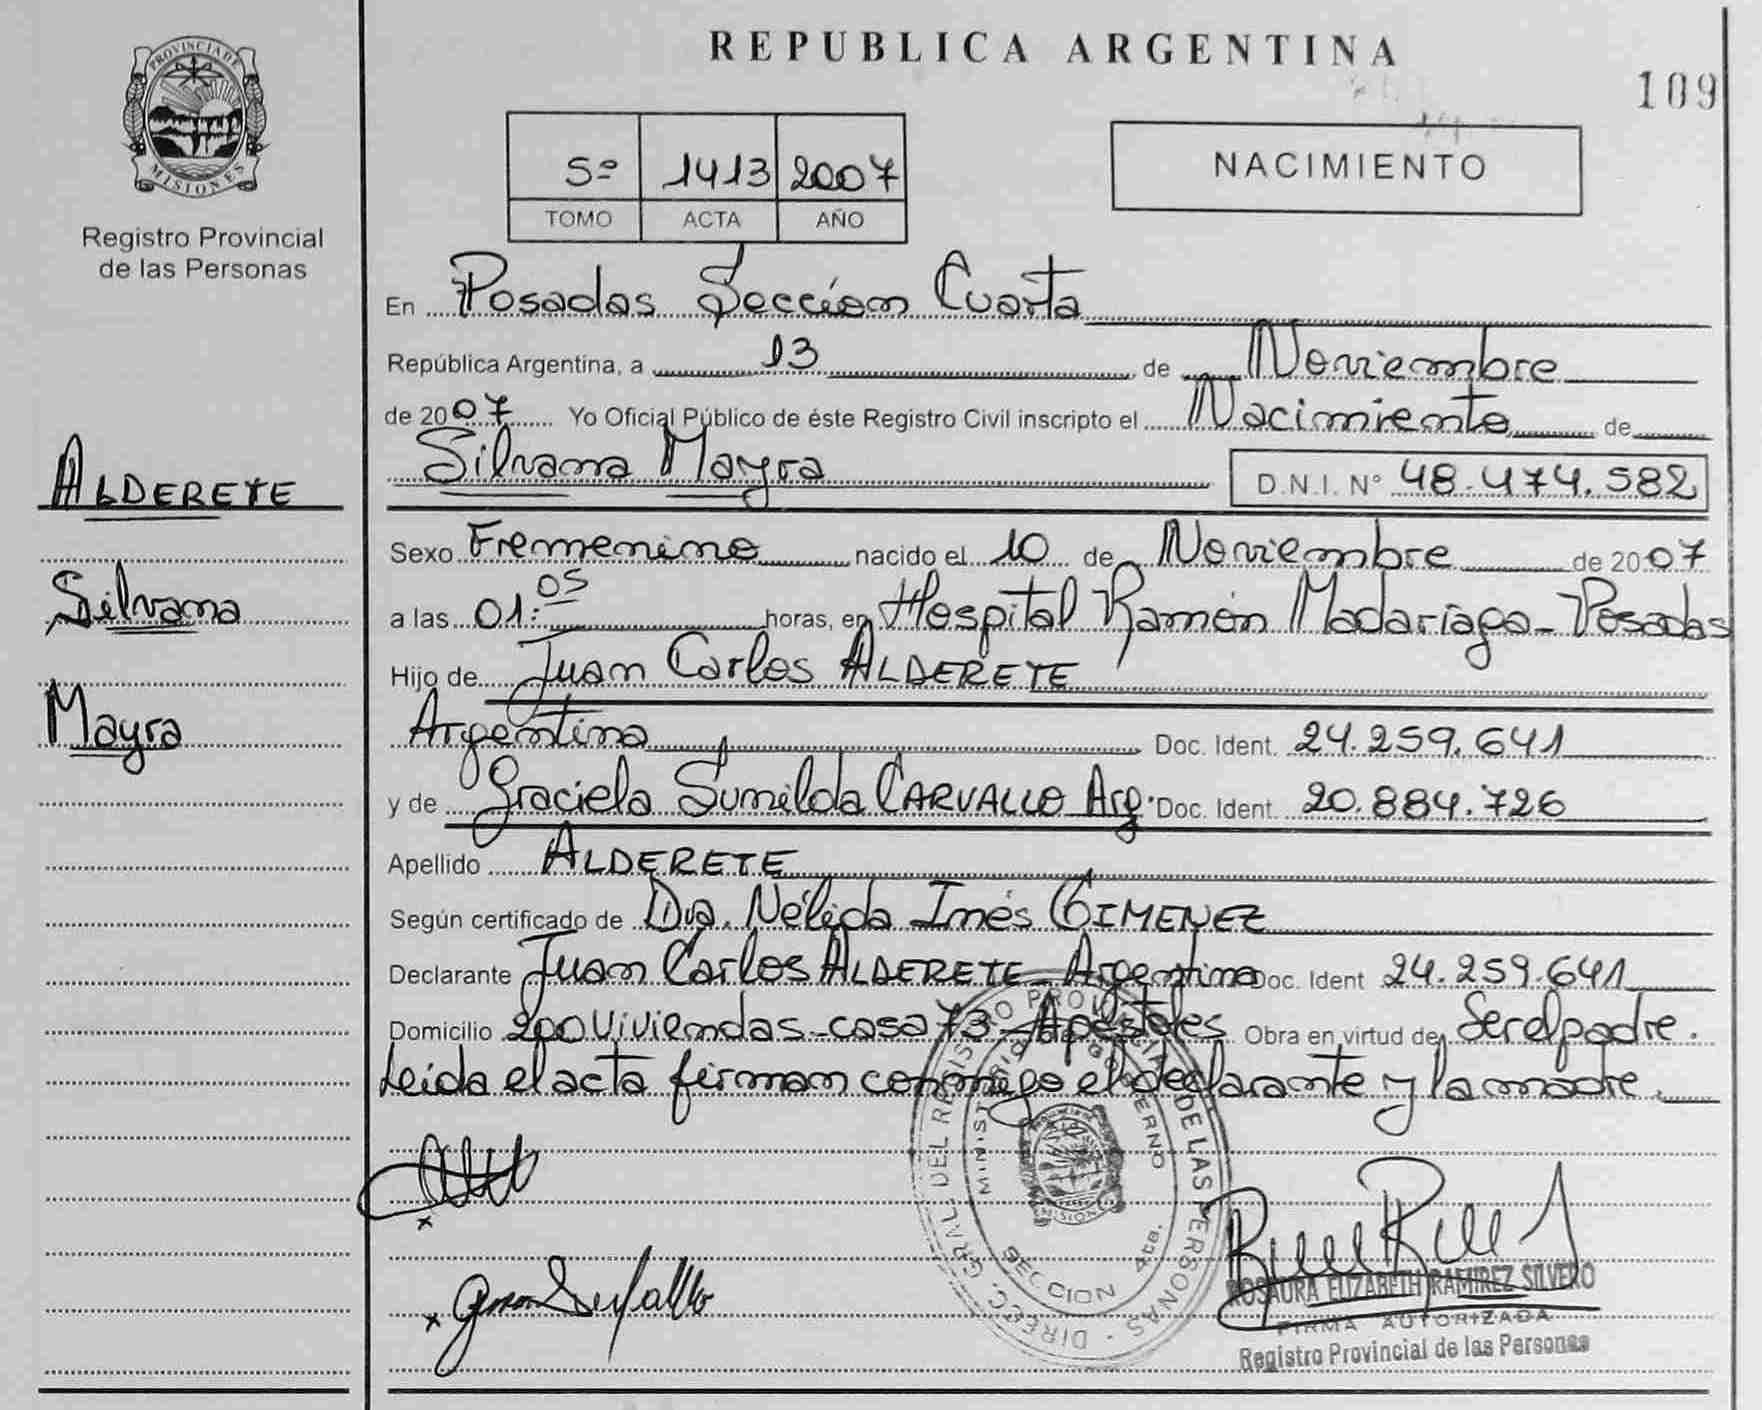 REPUBLICA ARGENTINA
109
PROVINCIA DE
MISIONES
Registro Provincial
de las Personas
5º 1413 2007
TOMO ACTA AÑO
NACIMIENTO
En Posadas Sección Cuarta
República Argentina, a 13 de Noviembre
de 2007 Yo Oficial Público de éste Registro Civil inscripto el Nacimiento de
Silvana Mayra D.N.I. Nº 48.474.582
ALDERETE
Silvana
Mayra
Sexo Femenino nacido el 10 de Noviembre de 2007
a las 01:05 horas, en Hospital Ramón Madariaga - Posadas
Hijo de Juan Carlos ALDERETE
Argentina Doc. Ident. 24.259.641
y de Graciela Sunilda CARVALLO Arg. Doc. Ident. 20.884.726
Apellido ALDERETE
Según certificado de Dra. Nélida Inés GIMENEZ
Declarante Juan Carlos ALDERETE - Argentino Doc. Ident 24.259.641
Domicilio 200 Viviendas - casa 73 - Apóstoles Obra en virtud de Ser el padre.
Leída el acta firman conmigo el declarante y la madre.
DIREC. GRAL. DEL REGISTRO PROVINCIAL DE LAS PERSONAS
MINISTERIO DE GOBIERNO
MISIONES
SECCION 4ta.
ROSAURA ELIZABETH RAMIREZ SILVERO
FIRMA AUTORIZADA
Registro Provincial de las Personas